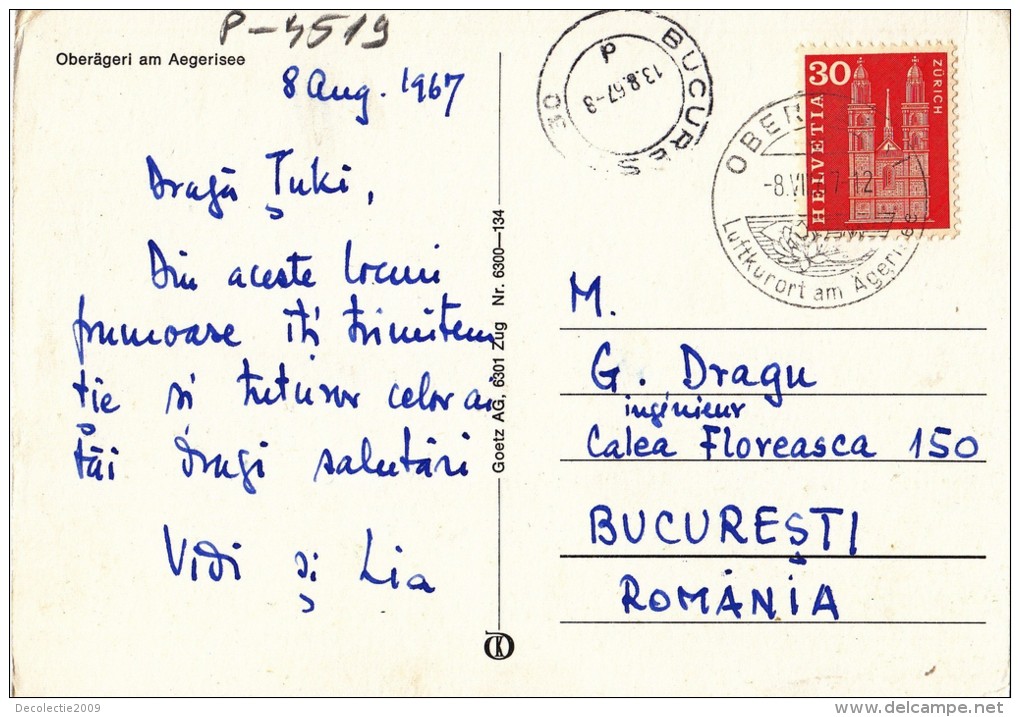 P-4519
Oberägeri am Aegerisee
8 Aug. 1967
Dragă Țuki,
Din aceste locuri
frumoase îți trimitem
ție și tuturor celor ai
tăi dragi salutări
Vidi și Lia
Goetz AG, 6301 Zug Nr. 6300—134
BUCURES
30
P
13.8.67-8
30
HELVETIA
ZÜRICH
OBER
-8.VII 7-12
Luftkurort am Ägerisee
M.
G. Dragu
ingénieur
Calea Floreasca 150
BUCUREȘTI
ROMÂNIA
Decolectie2009
delcampe.net